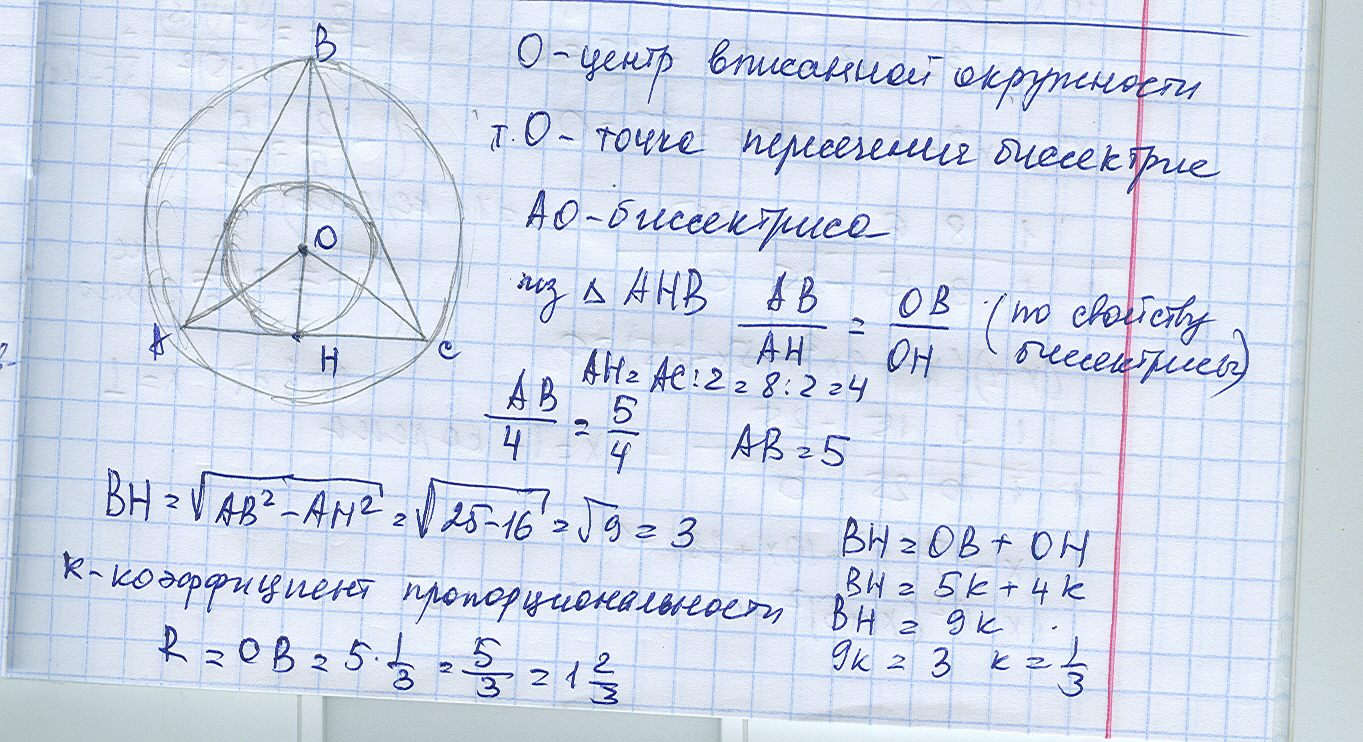 B
O
A
H
C
O - центр вписанной окружности
т. O - точка пересечения биссектрис
AO - биссектриса
из △ AHB AB/AH = OB/OH (по свойству биссектрисы)
AH = AC : 2 = 8 : 2 = 4
AB/4 = 5/4 AB = 5
BH = √(AB² - AH²) = √(25-16) = √9 = 3
BH = OB + OH
BH = 5k + 4k
BH = 9k
9k = 3 k = 1/3
k - коэффициент пропорциональности
R = OB = 5 · 1/3 = 5/3 = 1 2/3